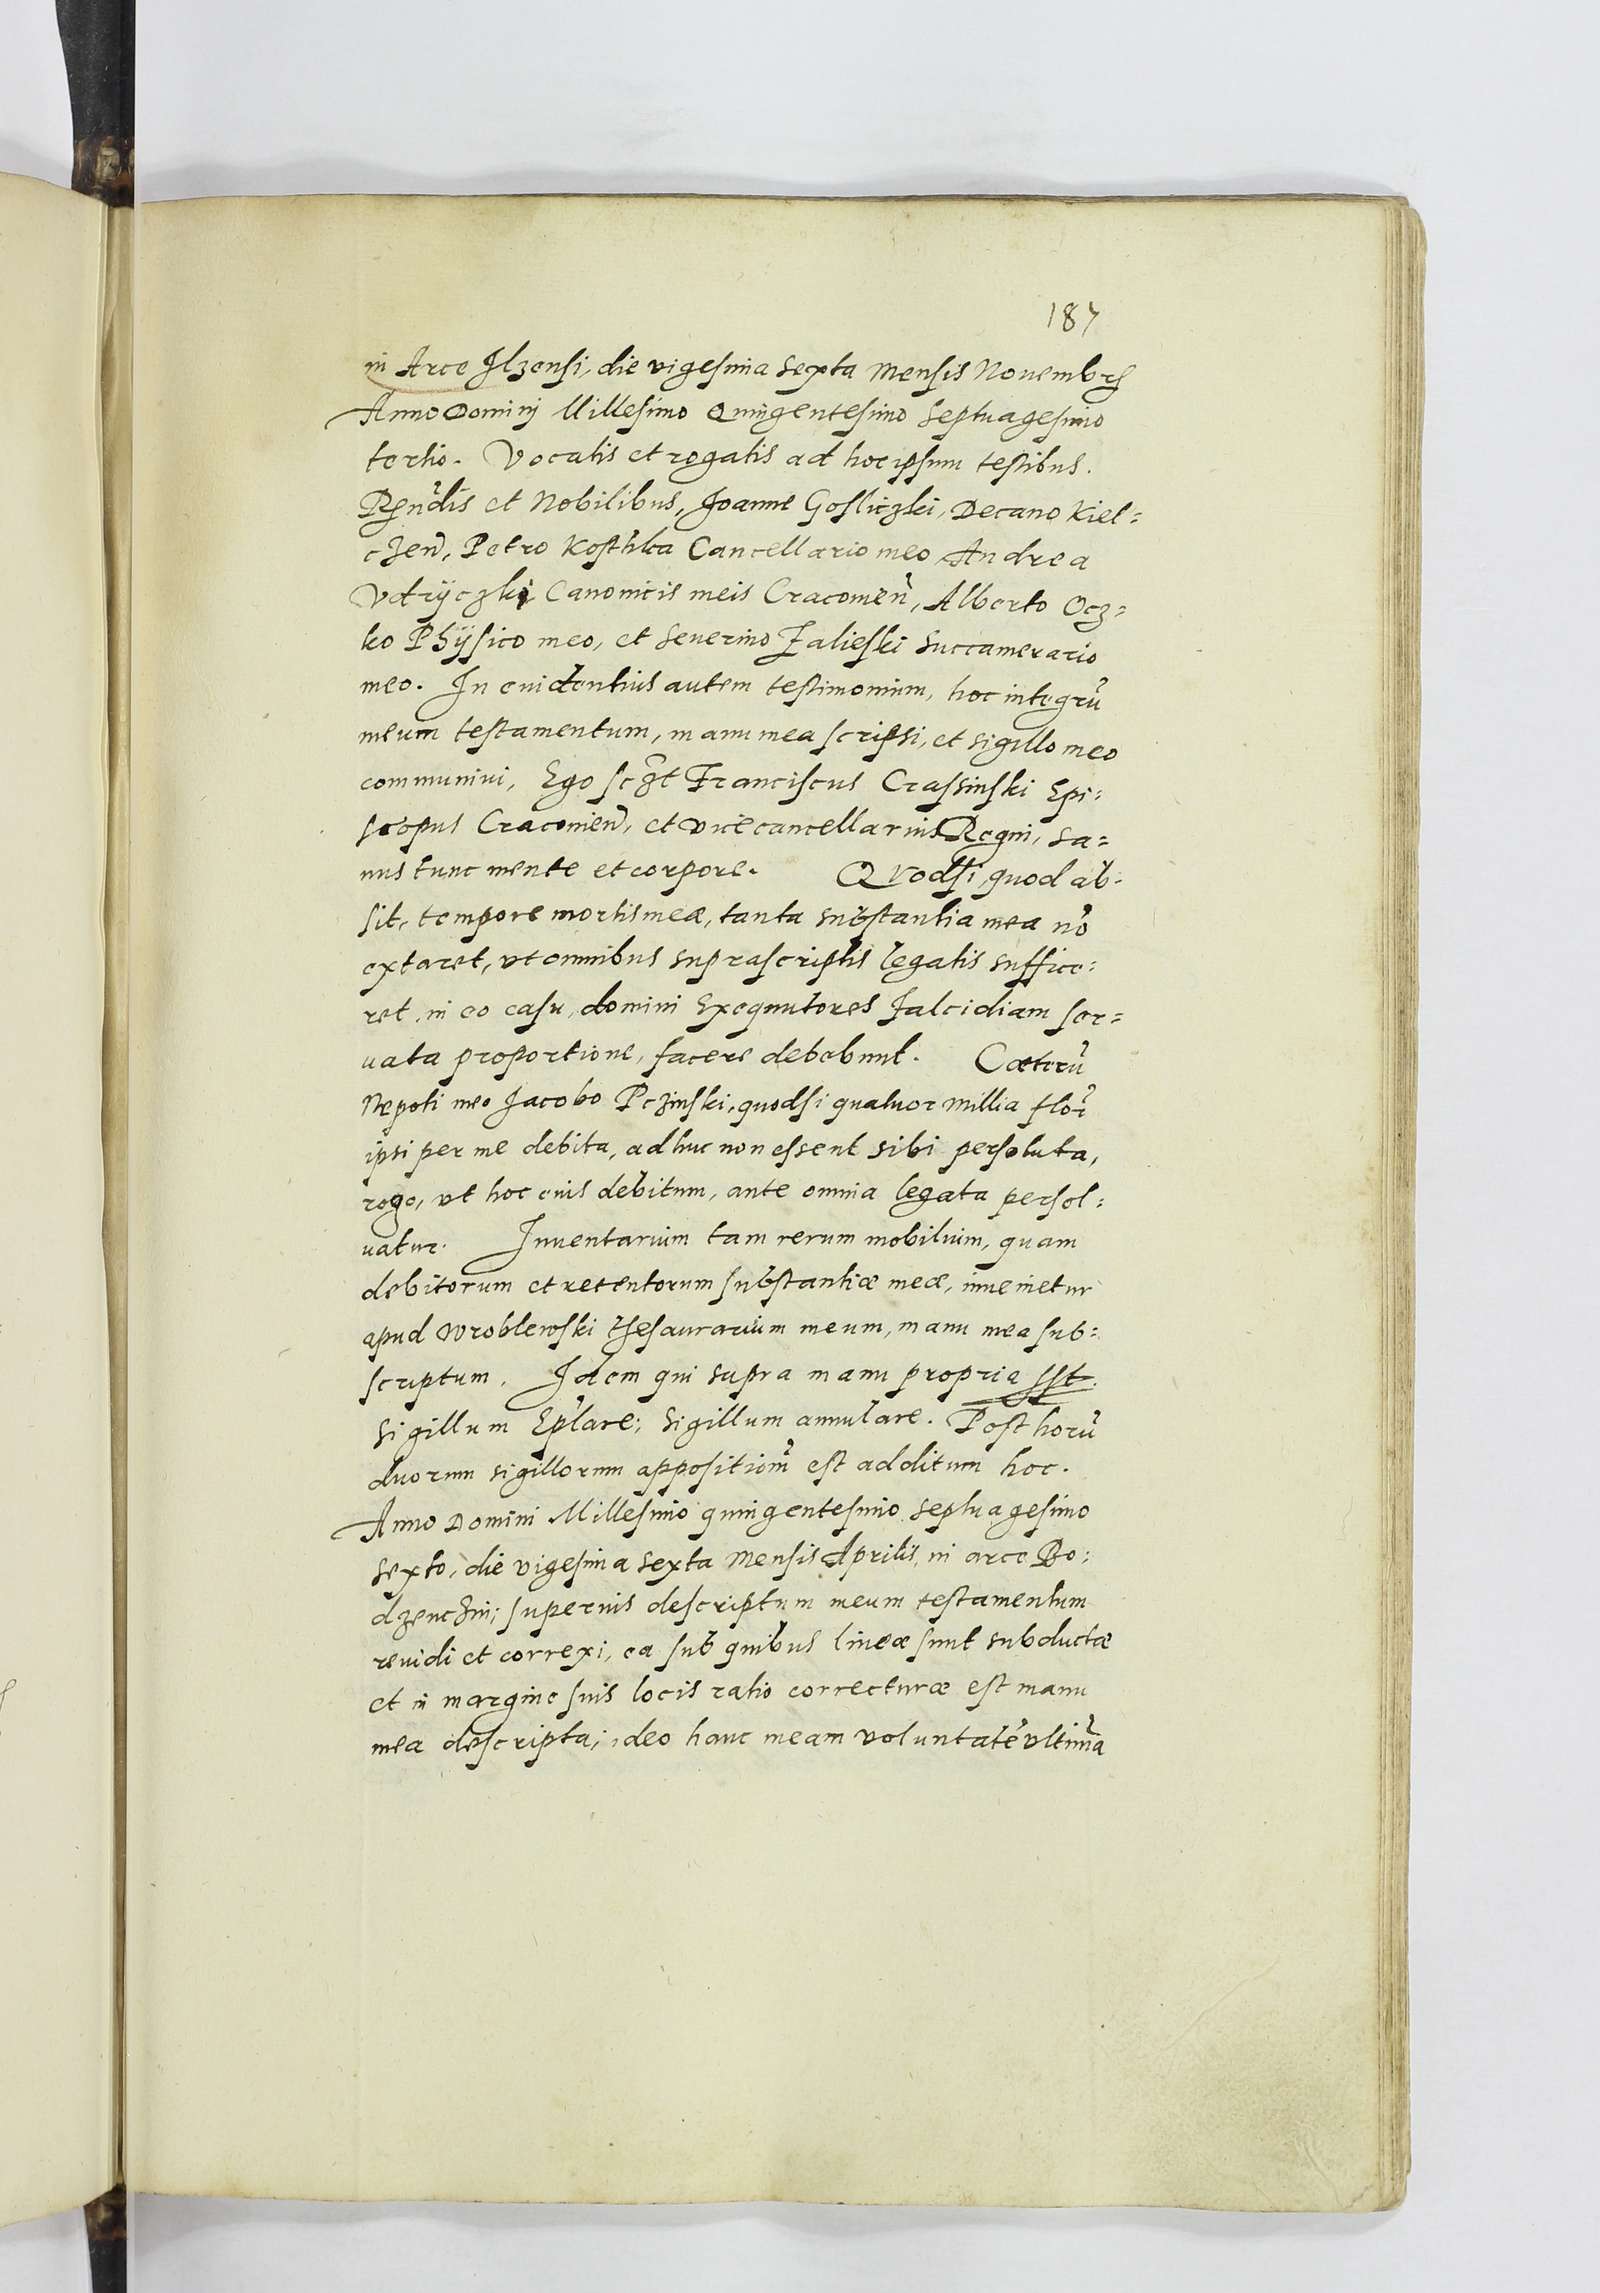 187
in Arce Ilzensi, die vigesima sexta Mensis Nouembrꝭ
Anno Dominj Millesimo Quingentesimo Septuagesimo
tertio. Vocatis et rogatis ad hoc ipsum testibus.
Rᷓndis et Nobilibus, Joanne Gosliczki, Decano Kiel=
czeñ, Petro Kosthka Cancellario meo Andrea
Vdryczki Canonicis meis Cracouieñ, Alberto Ocz=
ko Physico meo, et Seuerino Zalieski Succamerario
meo. In euidentius autem testimonium, hoc integrũ
meum testamentum, manu mea scripsi, et sigillo meo
communiui, Ego Franciscus Crassinski Epi=
scopus Cracouieñ, et vicecancellarius Regni, sa=
nus tunc mente et corpore. Quodsi, quod ab=
sit, tempore mortis meæ, tanta substantia mea nõ
extaret, vt omnibus suprascriptis legatis suffice=
ret, in eo casu, domini Exequutores Falcidiam ser=
uata proportione, facere debebunt. Cæterũ
Nepoti meo Jacobo Pczinski, quodsi quatuor millia flor̃
ipsi per me debita, adhuc non essent sibi persoluta,
rogo, vt hoc eius debitum, ante omnia legata persol=
uatur. Inuentarium tam rerum mobilium, quam
debitorum et retentorum substantiæ meæ, inuenietur
apud Wroblewski thesaurarium meum, manu mea sub=
scriptum. Idem qui supra manu propria sst.
Sigillum Epl̃are; Sigillum annulare. Post horũ
duorum sigillorum appositiom̃ est additum hoc.
Anno Domini Millesimo quingentesimo septuagesimo
sexto, die vigesima sexta Mensis Aprilis, in arce Bo=
dzenczin; superius descriptum meum testamentum
reuidi et correxi, ea sub quibus lineæ sunt subductæ
et in margine suis locis ratio correcturæ est manu
mea descripta; ideo hanc meam voluntatẽ vltim̃a